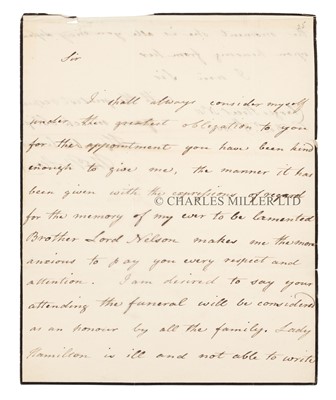 Sir
I shall always consider myself
under the greatest obligation to you
for the appointment you have been kind
enough to give me, the manner it has
been given with the expressions of regard
© CHARLES MILLER LTD
for the memory of my ever to be lamented
Brother Lord Nelson makes me the more
ancious to pay you every respect and
attention. I am desired to say your
attending the funeral will be considered
as an honour by all the family. Lady
Hamilton is ill and not able to write